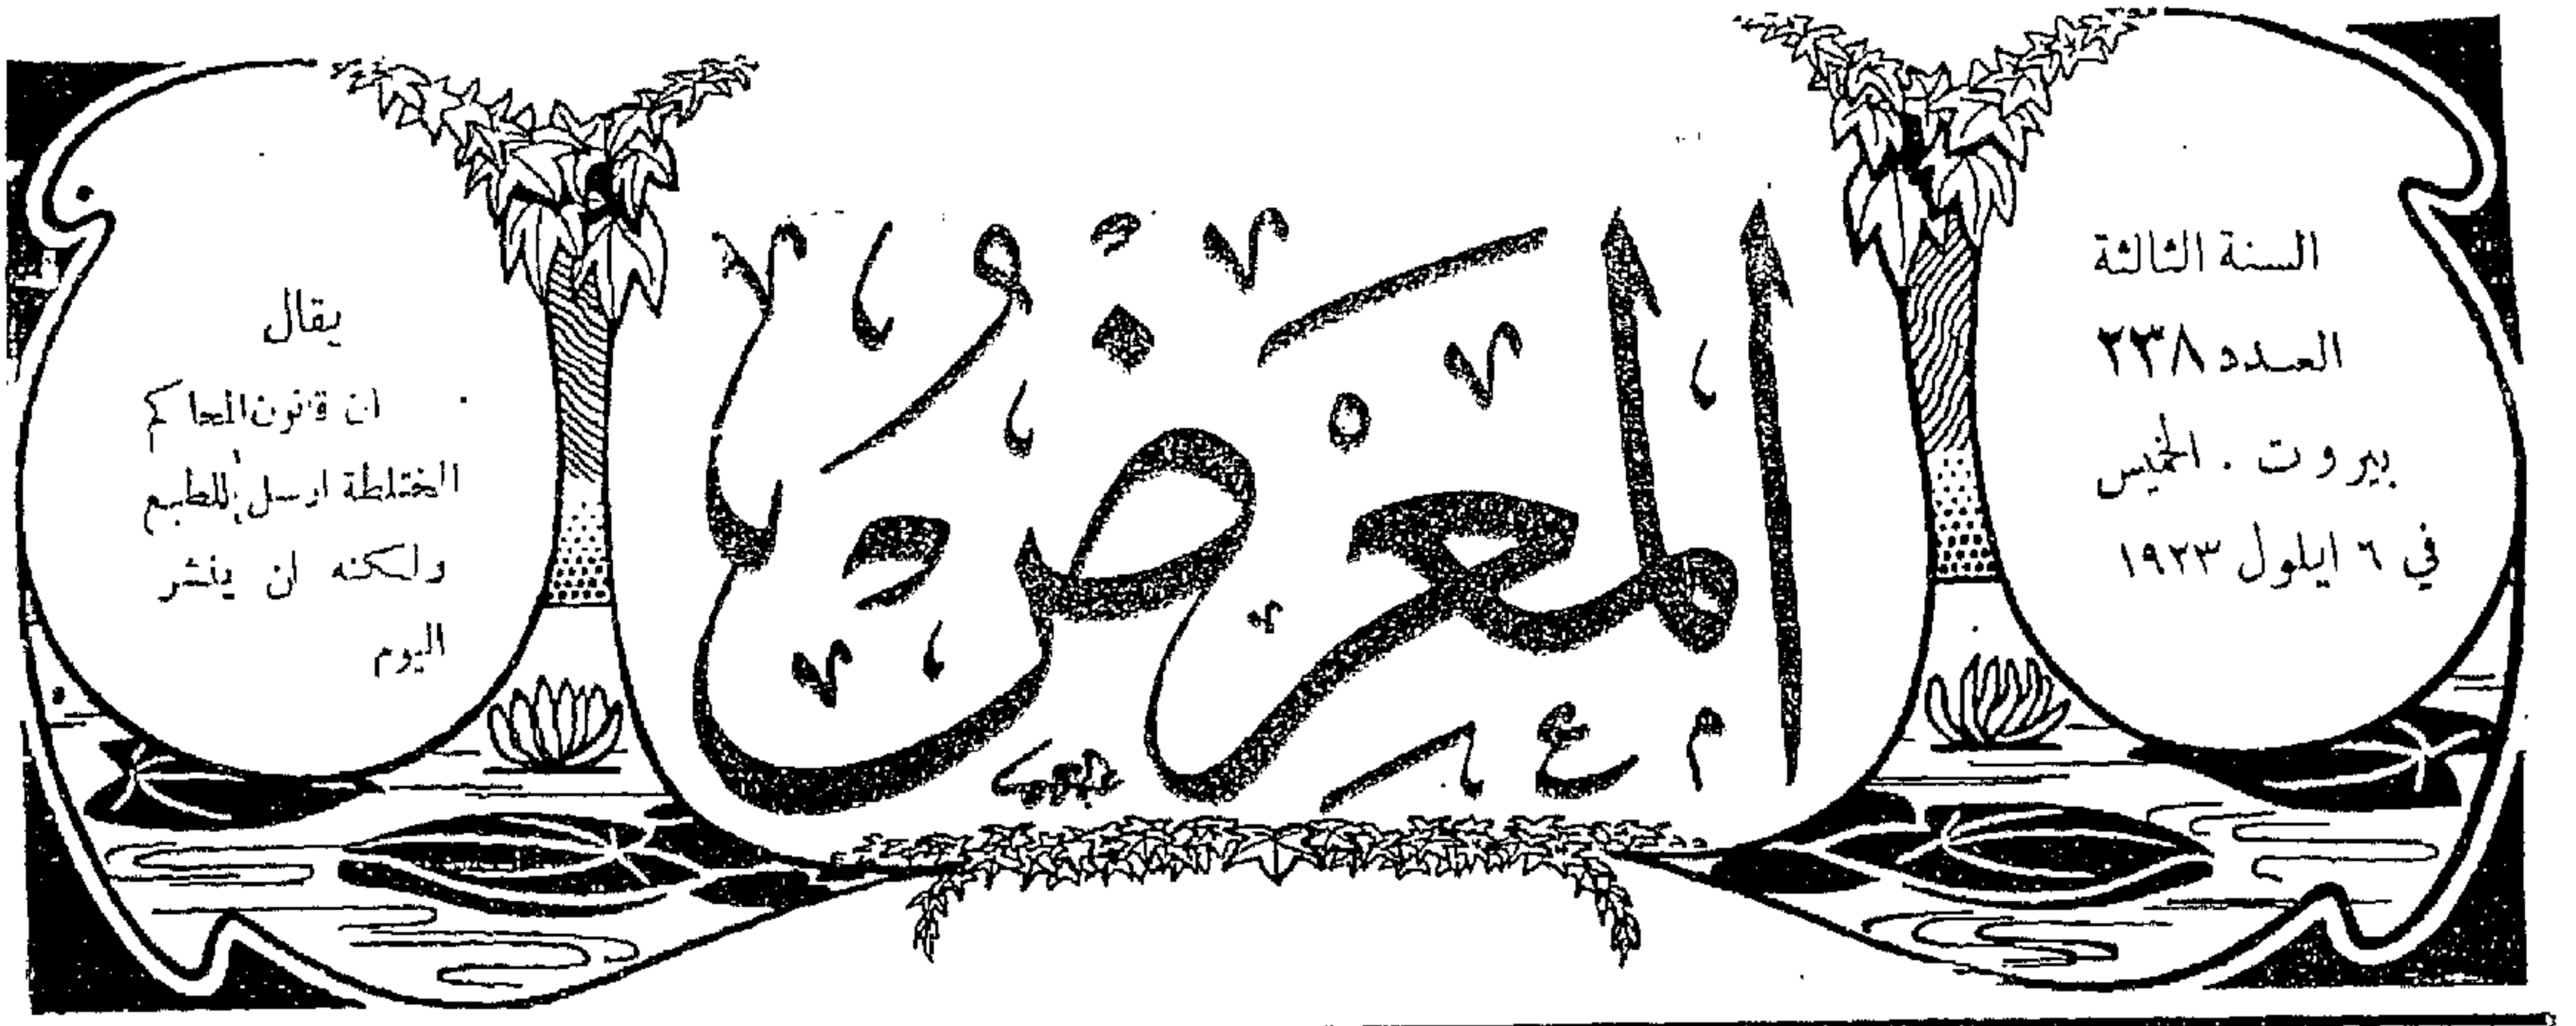 السنة الثالثة
العدد ٢٣٨
بيروت . الخميس
في ٦ ايلول ١٩٢٣
المعرض
يقال
ان قانون المحاكم
المختلطة ارسل للطبع
ولكنه لن ينشر
اليوم